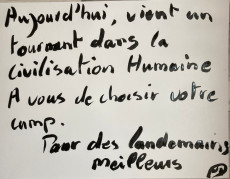 Aujourd'hui, vient un
tournant dans la
civilisation Humaine
A vous de choisir votre
camp.
Pour des landemains
meilleurs